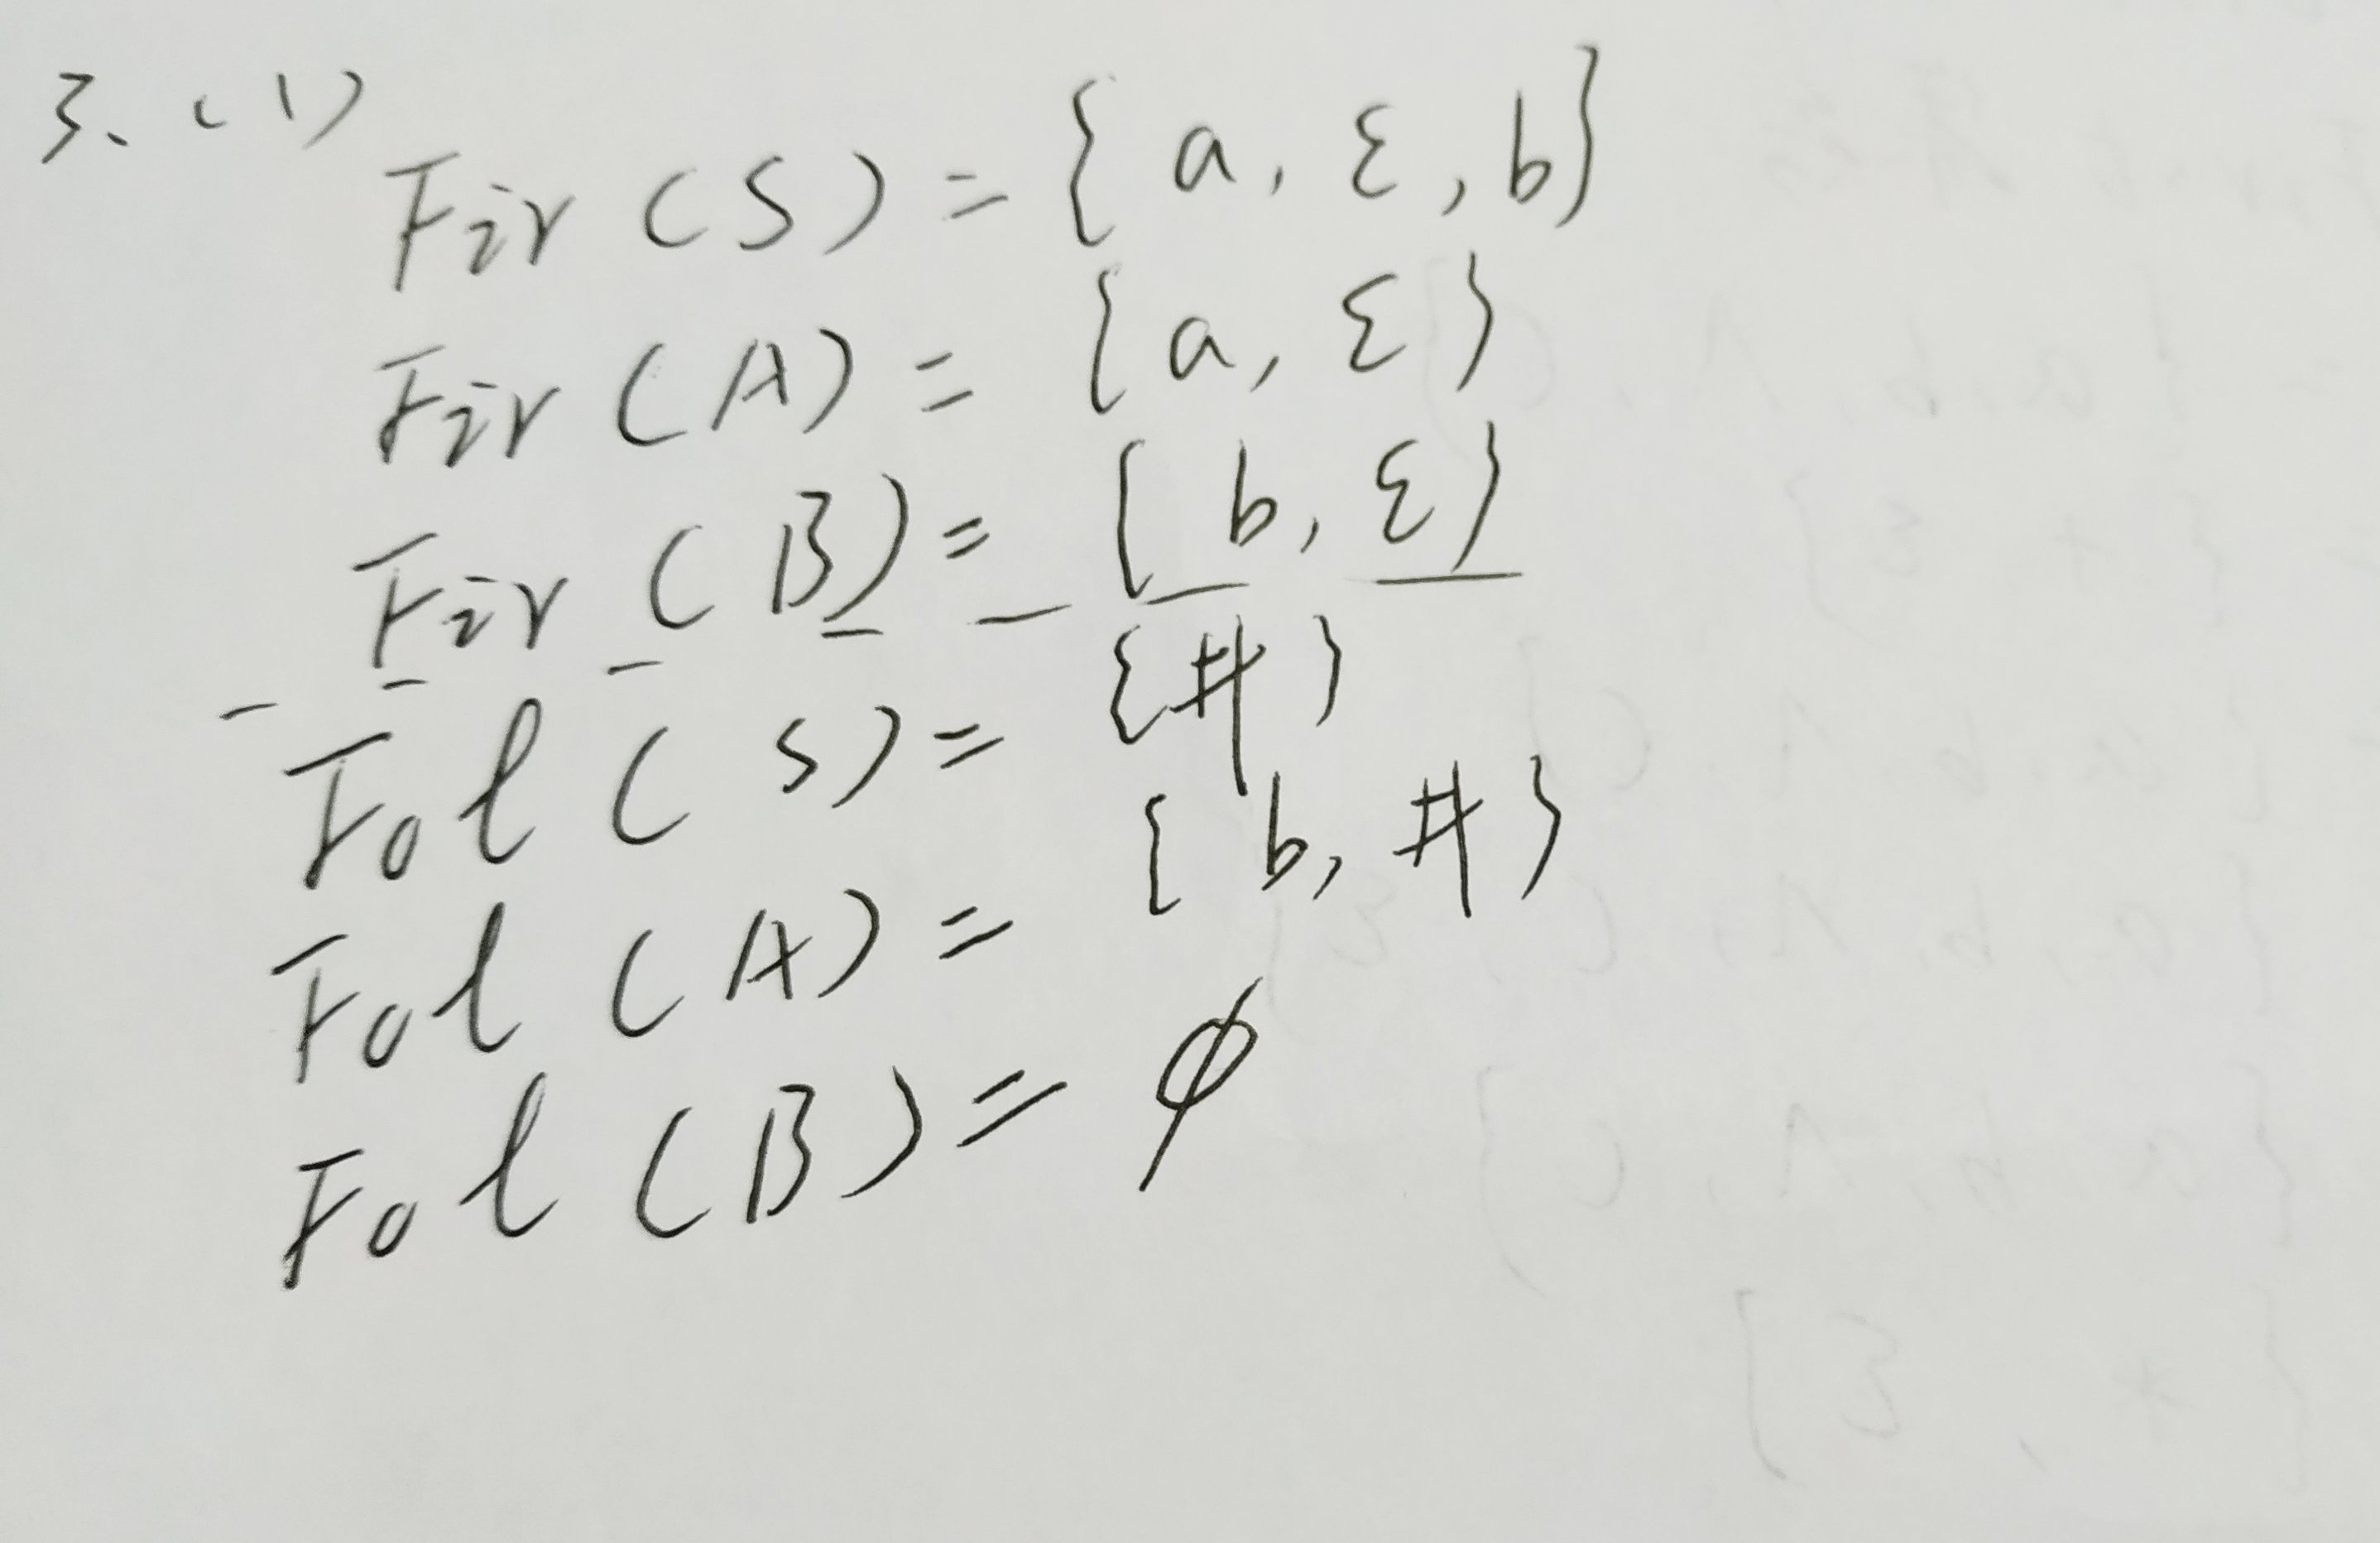 3、(1)
Fir (S) = { a, ε, b}
Fir (A) = {a, ε}
Fir (B) = { b, ε}
Fol ( S) = {#}
Fol (A) = { b, #}
Fol (B) = ϕ